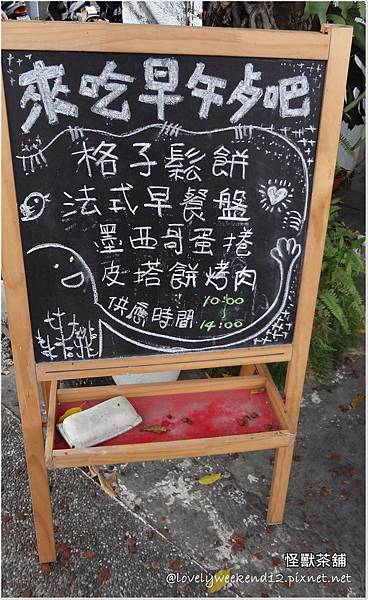 來吃早午歺吧
格子鬆餅
法式早餐盤
墨西哥蛋捲
皮塔餅烤肉
供應時間 10:00
14:00
怪獸茶舖
@lovelyweekend12.pixnet.net